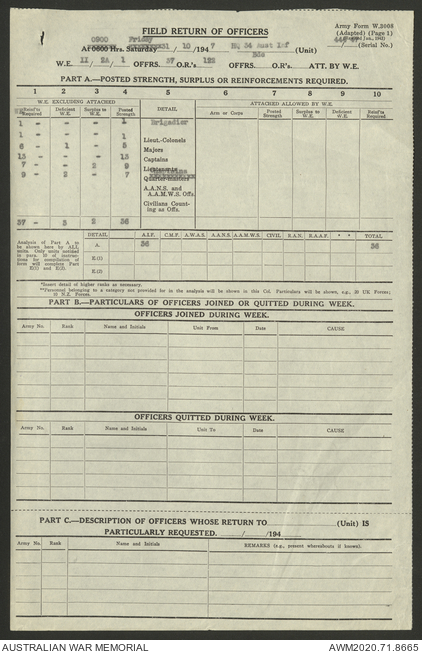 FIELD RETURN OF OFFICERS
Army Form W.3008
(Adapted) (Page 1)
(Serial No.)
0900 Friday
At 0600 Hrs. Saturday 31 / 10 /194 7 HQ 34 Aust Inf Bde (Unit)
W.E. II 2A 1 OFFRS. 37 O.R's 122 OFFRS. O.R's. ATT. BY W.E.
PART A.—POSTED STRENGTH, SURPLUS OR REINFORCEMENTS REQUIRED.
1 2 3 4 5 6 7 8 9 10
W.E. EXCLUDING ATTACHED
DETAIL
ATTACHED ALLOWED BY W.E.
Reinf'ts Required
Deficient W.E.
Surplus to W.E.
Posted Strength
Arms or Corps
Posted Strength
Surplus to W.E.
Deficient W.E.
Reinf'ts Required
1 - - 1 Brigadier
1 - - 1 Lieut.-Colonels
6 - 1 - 5 Majors
13 - - 13 Captains
7 - - 2 9 Lieutenants
9 - 2 - 7 Quarter-masters
A.A.N.S. and A.A.M.W.S. Offrs.
Civilians Counting as Offs.
37 - 3 2 36
Analysis of Part A to be shown here by ALL units. Only units notified in para. 10 of instructions for compilation of form will complete Part E(1) and E(2).
DETAIL A.I.F. C.M.F. A.W.A.S. A.A.N.S. A.A.M.W.S. CIVIL R.A.N. R.A.A.F. * * TOTAL
A. 36 36
E.(1)
E.(2)
*Insert detail of higher ranks as necessary.
**Personnel belonging to a category not provided for in the analysis will be shown in this Col. Particulars will be shown, e.g., 20 UK Forces; 10 N.Z. Forces.
PART B.—PARTICULARS OF OFFICERS JOINED OR QUITTED DURING WEEK.
OFFICERS JOINED DURING WEEK.
Army No. Rank Name and Initials Unit From Date CAUSE
OFFICERS QUITTED DURING WEEK.
Army No. Rank Name and Initials Unit To Date CAUSE
PART C.—DESCRIPTION OF OFFICERS WHOSE RETURN TO (Unit) IS
PARTICULARLY REQUESTED. / /194
Army No. Rank Name and Initials REMARKS (e.g., present whereabouts if known).
AUSTRALIAN WAR MEMORIAL AWM2020.71.8665